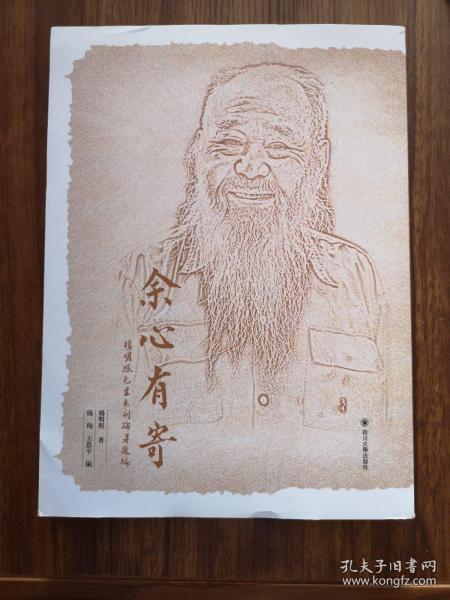 余心有寄
楊明照先生未刊論著選編
楊明照 著
楊珣 王恩平 編
四川大學出版社
孔夫子旧书网
www.kongfz.com